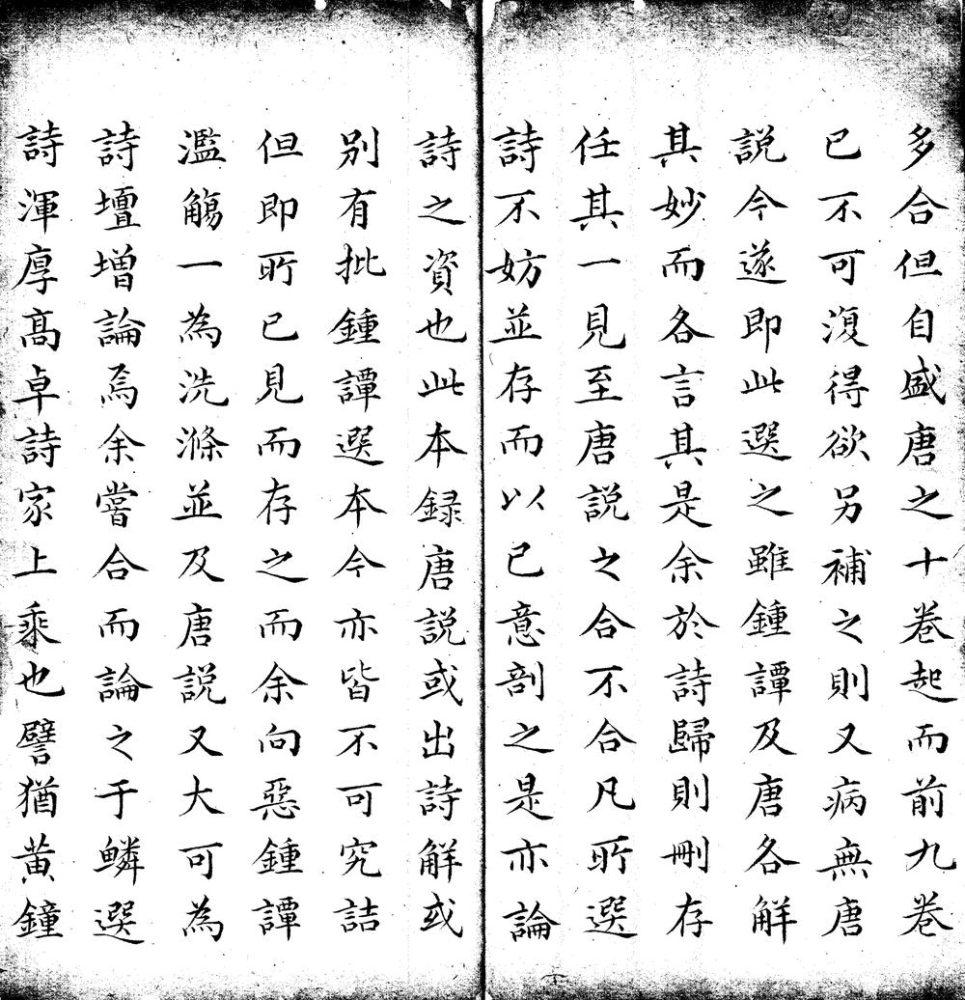 多合但自盛唐之十卷起而前九卷
已不可復得欲另補之則又病無唐
説今遂即此選之雖鍾譚及唐各解
其妙而各言其是余於詩歸則刪存
任其一見至唐説之合不合凡所選
詩不妨並存而以己意剖之是亦論
詩之資也此本録唐説或出詩解或
别有批鍾譚選本今亦皆不可究詰
但即所已見而存之而余向惡鍾譚
濫觴一為洗滌並及唐説又大可為
詩壇增論焉余嘗合而論之于鱗選
詩渾厚高卓詩家上乘也譬猶黃鐘